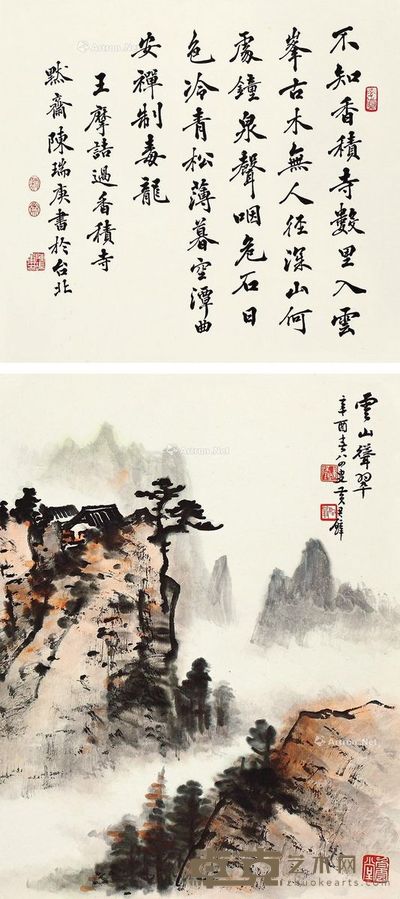 不知香積寺數里入雲
峯古木無人徑深山何
處鐘泉聲咽危石日
色冷青松薄暮空潭曲
安禪制毒龍
王摩詰過香積寺
默齋陳瑞庚書於台北
雲山聳翠
辛酉春八四叟黃君璧
Artron.Net
艺术网